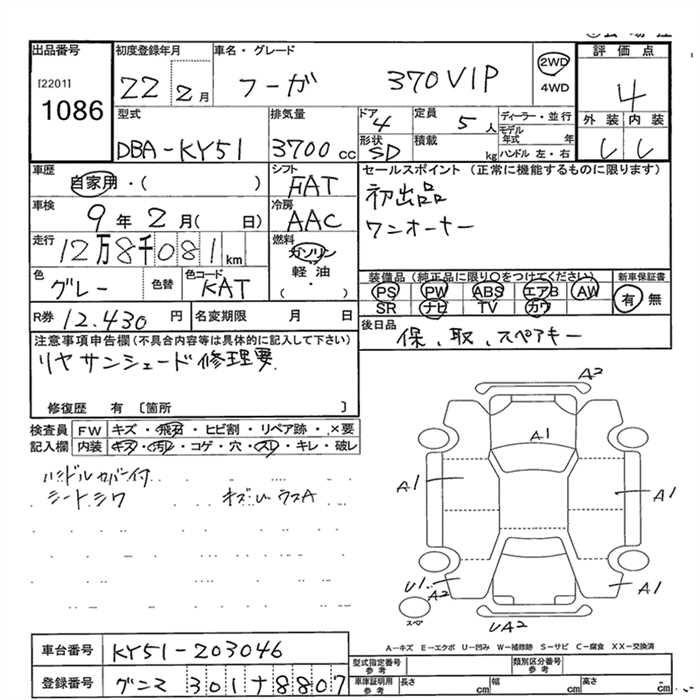 出品番号 初度登録年月 車名・グレード 評価点
[2201]
1086
22 2月 フーガ 370VIP 2WD 4
4WD
型式 排気量 ドア 4 定員 5人 ディーラー・並行 外装 内装
モデル年式 年
DBA-KY51 3700cc 形状 SD 積載 kg ハンドル 左・右 し し
車歴 シフト セールスポイント (正常に機能するものに限ります)
自家用・( ) FAT 初出品
車検 冷房 ワンオーナー
9年2月( 日) AAC
走行 燃料
12万8千081km ガソリン
軽油
・( )
色 グレー 色替 色コード KAT
装備品(純正品に限り〇をつけてください) 新車保証書
PS PW ABS エアB AW 有 無
SR ナビ TV カワ
R券 12.430円 名変期限 月 日 後日品
保、取、スペアキー
注意事項申告欄(不具合内容等は具体的に記入して下さい)
リヤサンシェード修理要
修復歴 有〔箇所 〕
検査員 FW キズ・飛石・ヒビ割・リペア跡・×要
記入欄 内装 キズ・汚レ・コゲ・穴・スレ・キレ・破レ
ハンドルカバー付
シートシワ
A2
A1
A1
A1
U1
A2
A1
スペ
UA2
A-キズ E-エクボ U-凹み W-補修跡 S-サビ C-腐食 XX-交換済
車台番号 KY51-203046
登録番号 グンマ 301 サ 8807
型式指定番号 参考 類別区分番号 参考
車庫証明用 参考 長さ cm 幅 cm 高さ cm